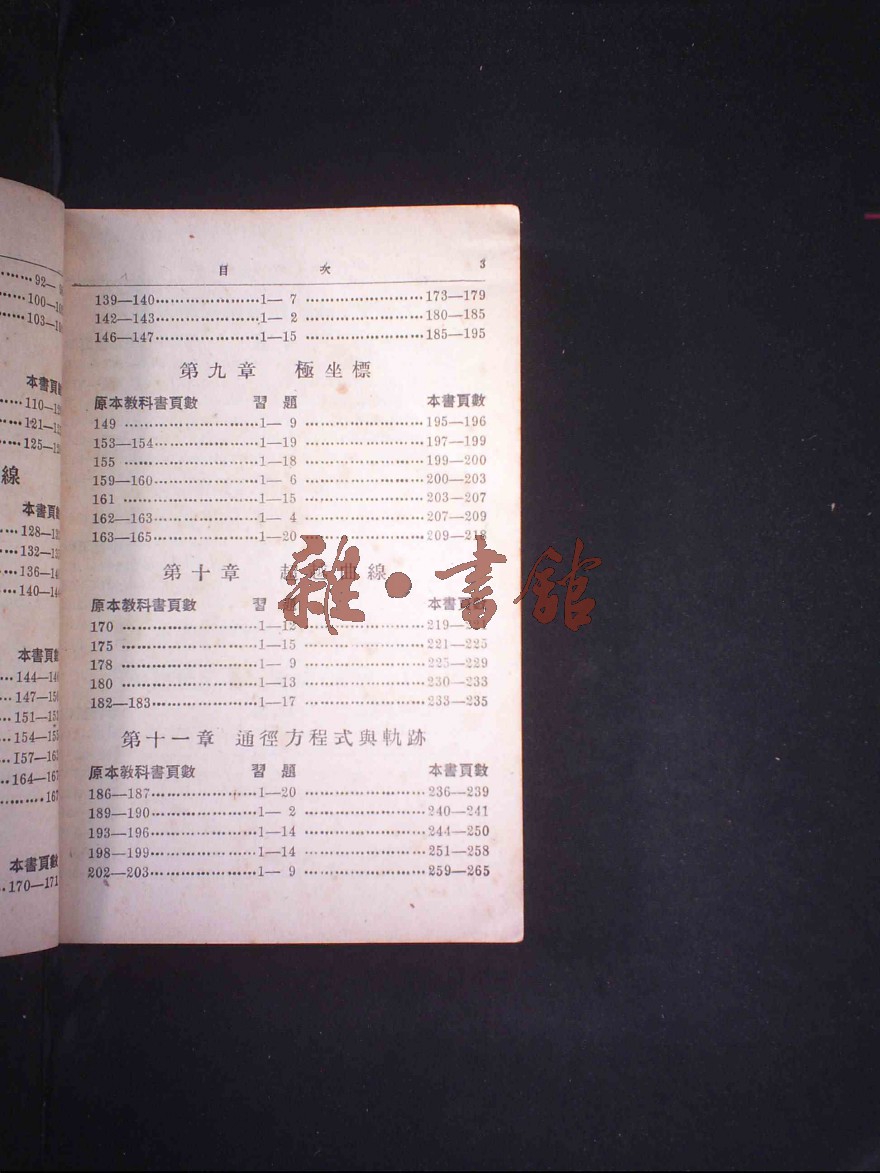 92—
100—
103—
本書頁
110—
121—
125—
線
本書頁
128—
132—
136—
140—
本書頁
144—
147—
151—
154—
157—
164—
167
本書頁
170—171
目 次 3
139—140 1— 7 173—179
142—143 1— 2 180—185
146—147 1—15 185—195
第九章 極坐標
原本教科書頁數 習題 本書頁數
149 1— 9 195—196
153—154 1—19 197—199
155 1—18 199—200
159—160 1— 6 200—203
161 1—15 203—207
162—163 1— 4 207—209
163—165 1—20 209—218
第十章 超越曲線
原本教科書頁數 習題 本書頁數
170 1—12 219—221
175 1—15 221—225
178 1— 9 225—229
180 1—13 230—233
182—183 1—17 233—235
第十一章 通徑方程式與軌跡
原本教科書頁數 習題 本書頁數
186—187 1—20 236—239
189—190 1— 2 240—241
193—196 1—14 244—250
198—199 1—14 251—258
202—203 1— 9 259—265
雜·書館